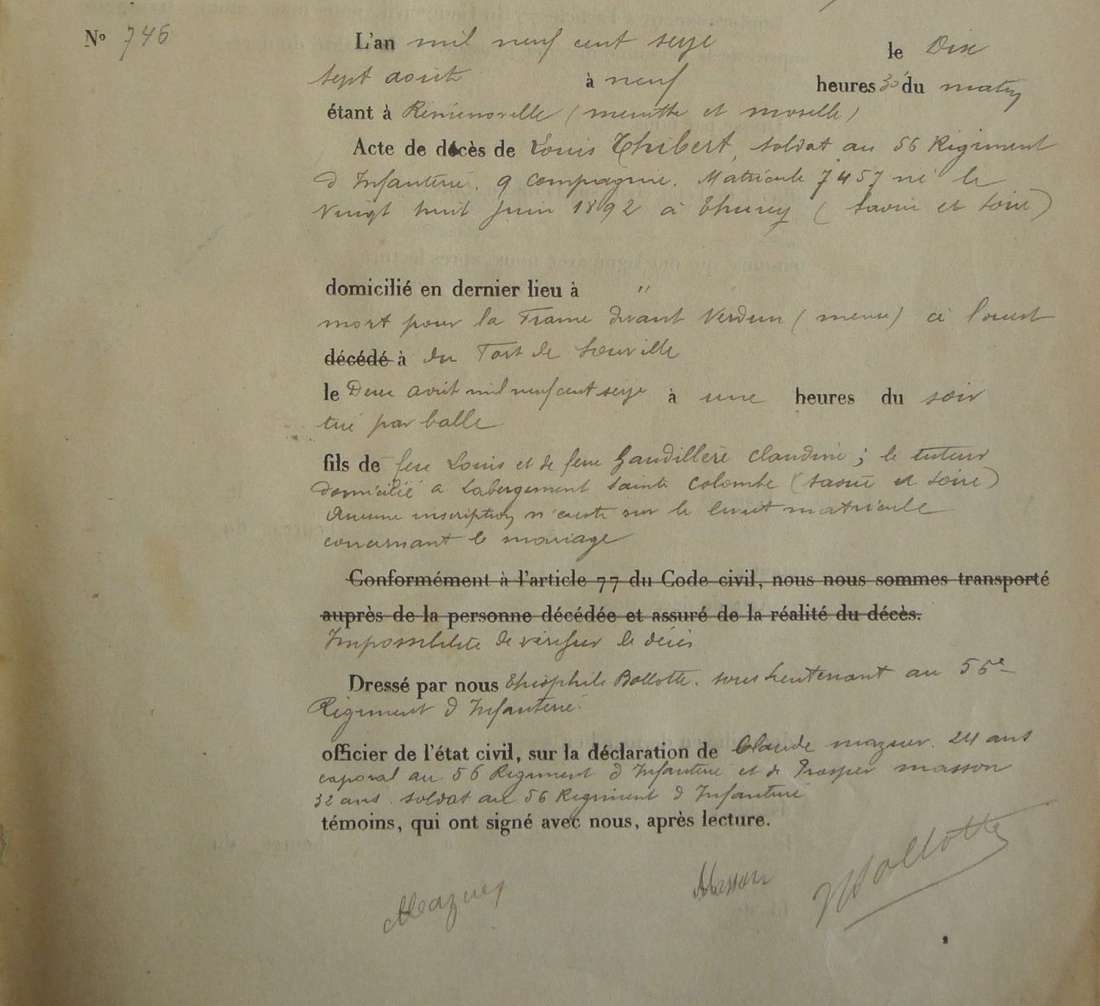 Nº 746
L'an mil neuf cent seize le Dix
sept août à neuf heures 30 du matin
étant à Reménoville (meurthe et moselle)
Acte de décès de Louis Thibert, soldat au 56 Régiment
d Infanterie. 9 compagnie. Matricule 7457 né le
Vingt huit juin 1892 à Thurey (Saône et Loire)
domicilié en dernier lieu à "
mort pour la France devant Verdun (meuse) à l'ouest
décédé à du Fort de Souville
le Deux août mil neuf cent seize à une heures du soir
tué par balle
fils de feu Louis et de feue Gaudillère Claudine ; le tuteur
domicilié a Labergement Sainte Colombe (Saône et Loire)
Aucune inscription n'existe sur le livret matricule
concernant le mariage
Conformément à l'article 77 du Code civil, nous nous sommes transporté
auprès de la personne décédée et assuré de la réalité du décès.
Impossibilité de vérifier le décès
Dressé par nous Théophile Bollotte. sous Lieutenant au 56e
Régiment d Infanterie.
officier de l'état civil, sur la déclaration de Claude mazuer. 24 ans
caporal au 56 Régiment d Infanterie et de Prosper masson
32 ans. soldat au 56 Régiment d Infanterie
témoins, qui ont signé avec nous, après lecture.
Mazuer Masson Bollotte